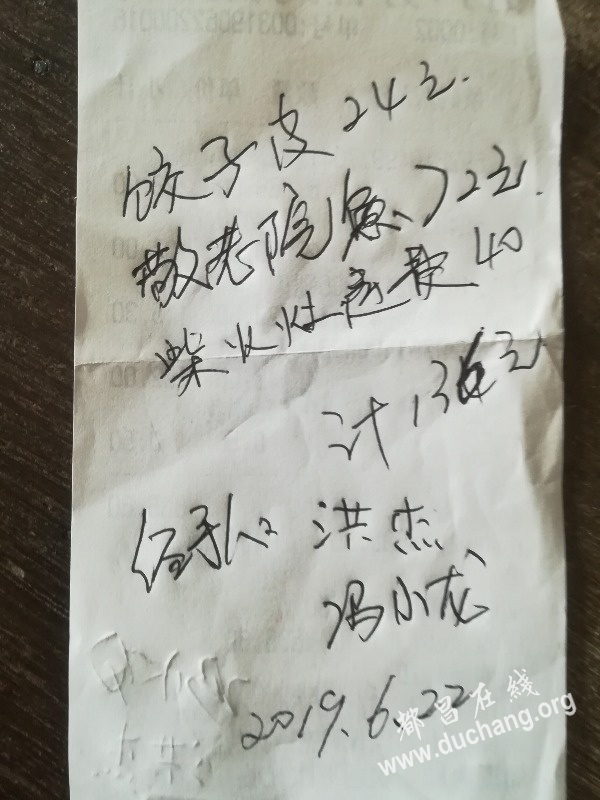 饺子皮24元.
敬老院鱼、72元.
柴火灶 40
计136元
经手人: 洪杰
冯小龙
2019.6.22
都昌在線
www.duchang.org